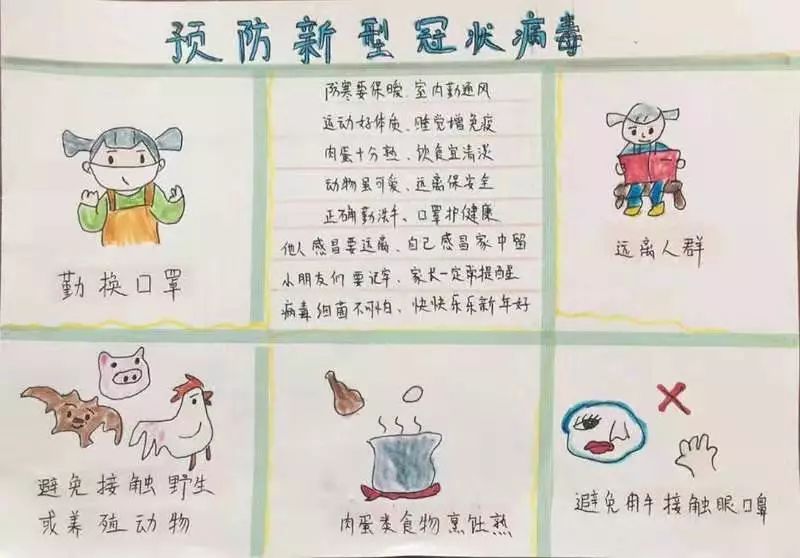 预防新型冠状病毒
勤换口罩
防寒要保暖、室内勤通风
运动好体质、睡觉增免疫
肉蛋十分熟、饮食宜清淡
动物虽可爱、远离保安全
正确勤洗手、口罩护健康
他人感冒要远离、自己感冒家中留
小朋友们要记牢、家长一定常提醒
病毒细菌不可怕、快快乐乐新年好
远离人群
避免接触野生
或养殖动物
肉蛋类食物烹饪熟
避免用手接触眼口罩